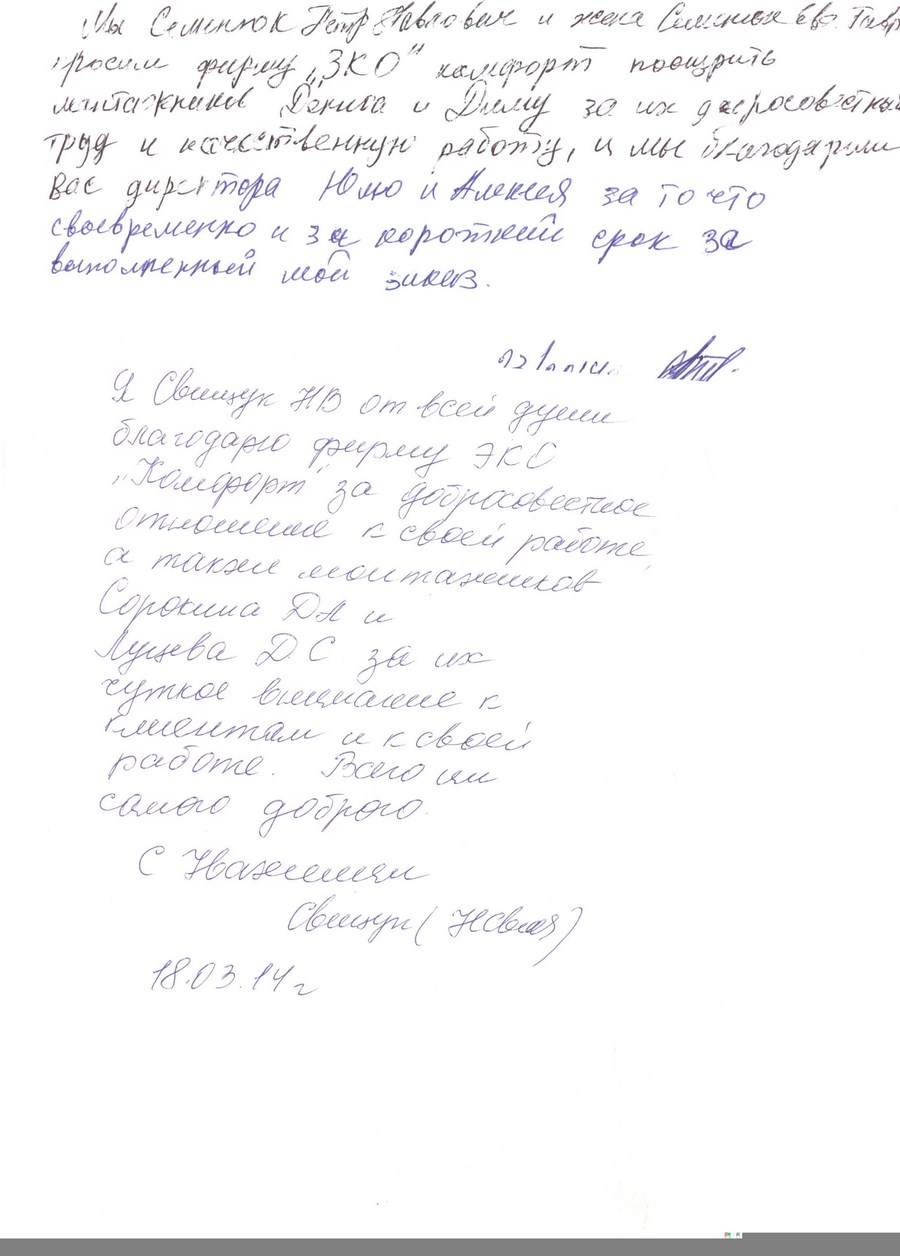 Мы Семенюк Петр Павлович и жена Семенюк Ева
просим фирму „ЗКО" камфорт поощрить
монтажников Дениса и Диму за их
труд и качественную работу, и мы благодарим
Вас директора Юлю и Алексея за то что
своевременно и за короткий срок за
выполненный мой заказ.
Я Свищук НВ от всей души
благодарю фирму ЭКО
„Комфорт" за добросовестное
отношение к своей работе,
а также монтажников
Сорокина ДА и
Лущева Д.С. за их
чуткое внимание к
клиентам и к своей
работе. Всего им
самого доброго.
С Уважением
Свищук (
18.03.14 г